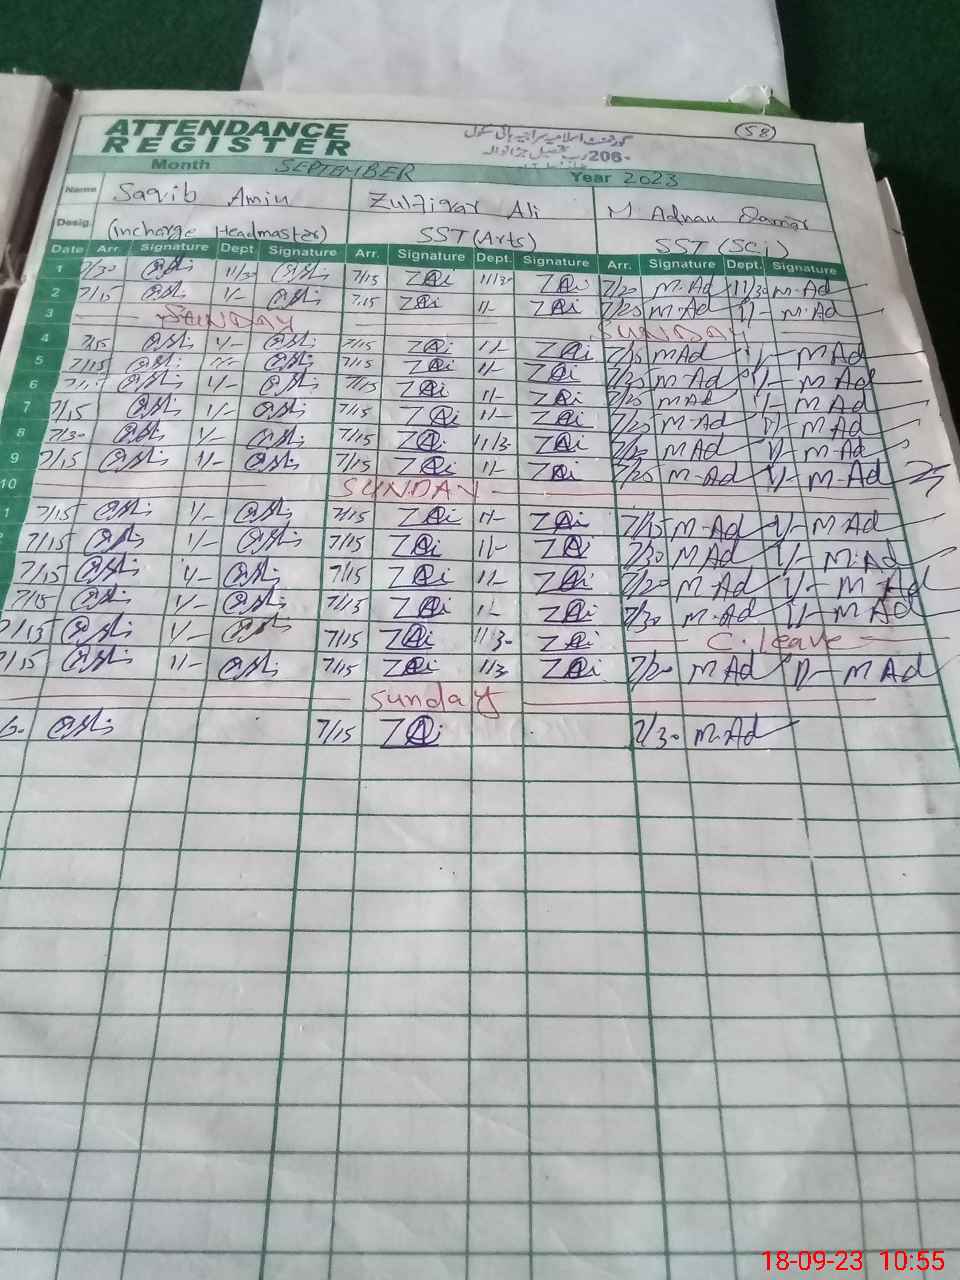 58
ATTENDANCE
REGISTER
گورنمنٹ اسلامیہ ہائی سکول
206 رب تحصیل جڑانوالہ
Month SEPTEMBER Year 2023
Name Saqib Amin Zulfiqar Ali M Adnan Qamar
Desig. (incharge Headmaster) SST (Arts) SST (Sci)
Date Arr. Signature Dept Signature Arr. Signature Dept. Signature Arr. Signature Dept. Signature
1 7/30 11/30 7/15 ZAi 11/30 ZAi 7/20 M.Ad 11/30 M.Ad
2 7/15 1/- 7/15 ZAi 1/- ZAi 7/20 M.Ad 1/- M.Ad
3 SUNDAY SUNDAY
4 7/15 1/- 7/15 ZAi 1/- ZAi 7/15 M Ad 1/- M Ad
5 7/15 1/- 7/15 ZAi 1/- ZAi 7/20 M.Ad 1/- M.Ad
6 7/15 1/- 7/15 ZAi 1/- ZAi 7/25 M Ad 1/- M Ad
7 7/15 1/- 7/15 ZAi 1/- ZAi 7/20 M.Ad 1/- M Ad
8 7/30 1/- 7/15 ZAi 11/30 ZAi M Ad 1/- M.Ad
9 7/15 1/- 7/15 ZAi 1/- ZAi 7/20 M.Ad 1/- M.Ad
10 SUNDAY
1 7/15 1/- 7/15 ZAi 1/- ZAi 7/15 M.Ad 1/- M Ad
7/15 1/- 7/15 ZAi 1/- ZAi 7/30 M Ad 1/- M.Ad
7/15 1/- 7/15 ZAi 1/- ZAi 7/20 M Ad 1/- M Ad
7/15 1/- 7/15 ZAi 1/- ZAi 7/30 M.Ad 1/- M Ad
7/15 1/- 7/15 ZAi 11/30 ZAi C. leave
7/15 1/- 7/15 ZAi 11/3 ZAi 7/20 M Ad 1/- M Ad
Sunday
7/15 ZAi 7/30 M.Ad
18-09-23 10:55